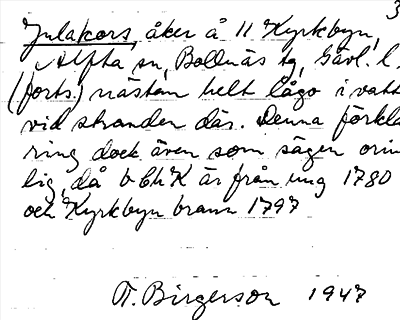 3
Julakors, åker å 11 Kyrkbyn,
Alfta sn, Bollnäs tg, Gävl. l.
(forts.) nästan helt lågo i vatt
vid stranden där. Denna förkla
ring dock även som sägen orim
lig, då b Ch K är från 1780
och Kyrkbyn brann 1797
T. Birgerson 1947